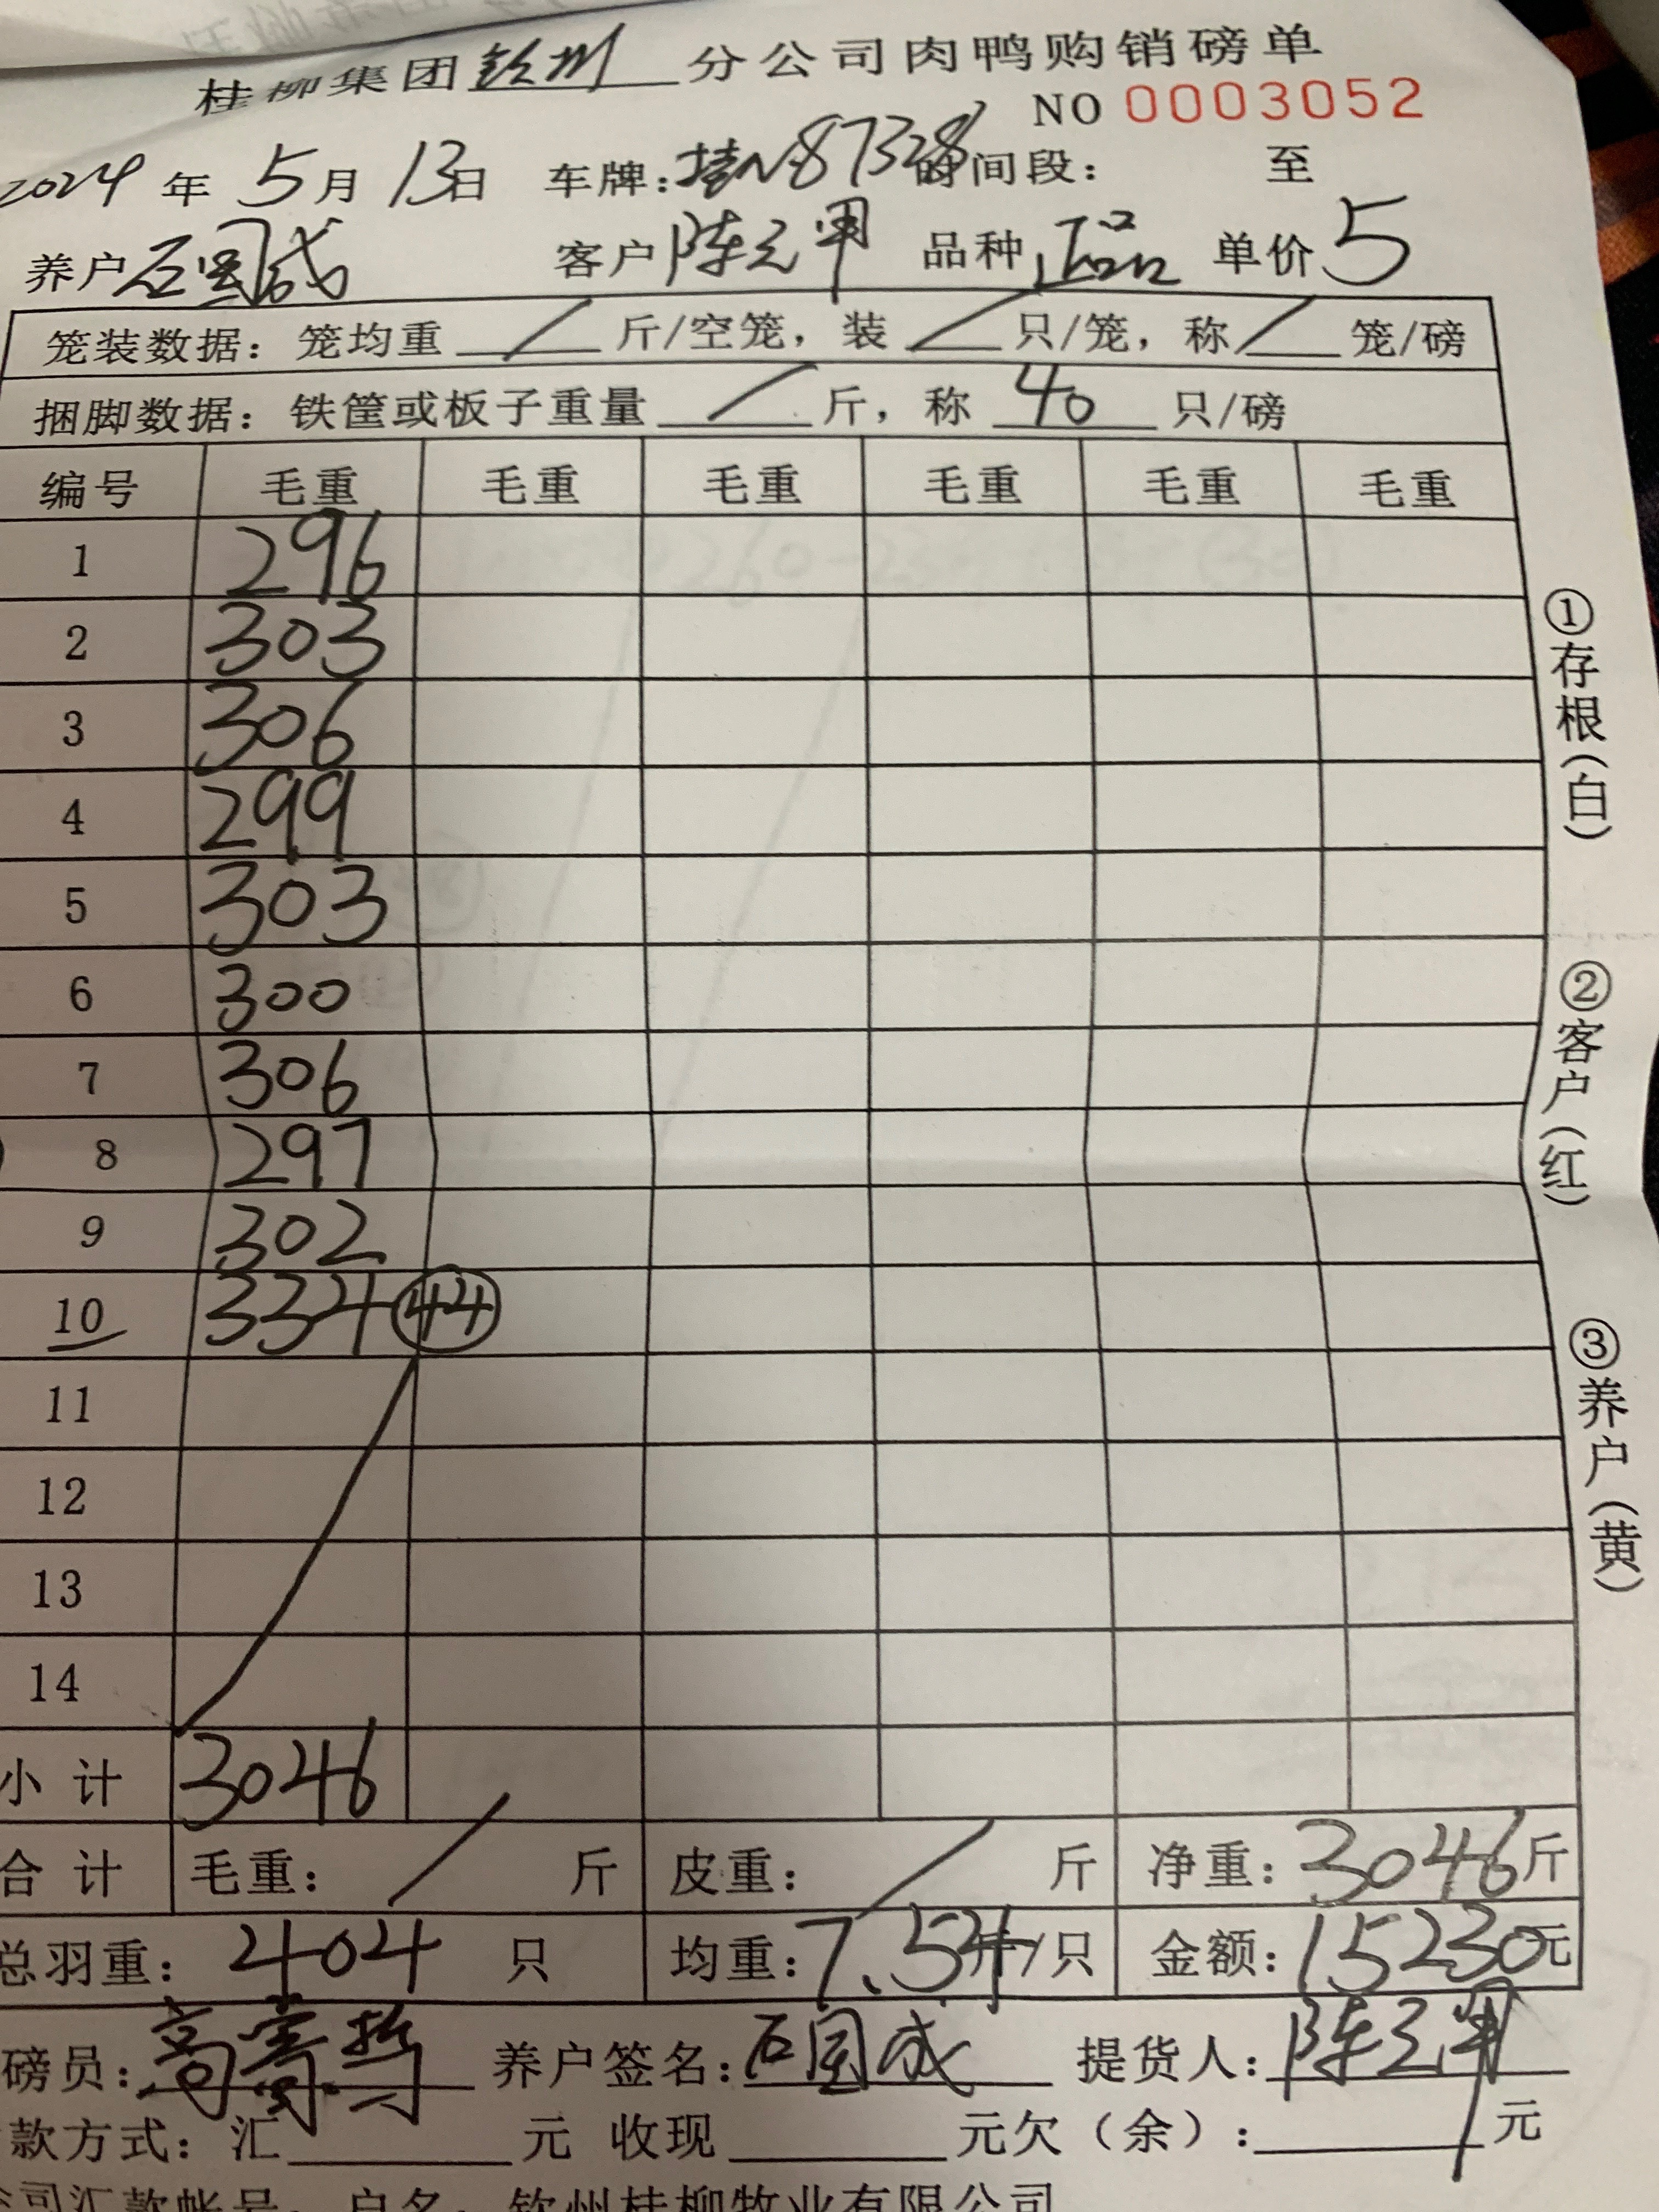 桂柳集团钦州分公司肉鸭购销磅单
NO 0003052
2024年5月13日 车牌:桂N87328 时间段: 至
养户石国成 客户陈元军 品种正品 单价5
笼装数据: 笼均重 / 斤/空笼, 装 / 只/笼, 称 / 笼/磅
捆脚数据: 铁筐或板子重量 / 斤, 称 40 只/磅
编号 毛重 毛重 毛重 毛重 毛重 毛重
1 296
2 303
3 306
4 299
5 303
6 300
7 306
8 297
9 302
10 334 44
11
12
13
14
小计 3046
合计 毛重: / 斤 皮重: / 斤 净重:3046斤
总羽重: 404 只 均重:7.54斤/只 金额:15230元
磅员: 高 养户签名:石国成 提货人:陈元军
款方式: 汇 元 收现 元欠(余): 元
公司汇款帐号: 户名: 钦州桂柳牧业有限公司
①存根(白)
②客户(红)
③养户(黄)